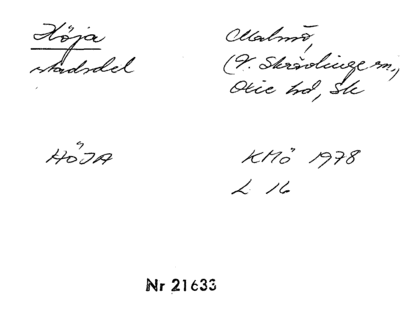 Höja
stadsdel
Malmö,
(V. Skrävlinge sn.,
Oxie hd, Sk
HÖJA
KMö 1978
L 16
Nr 21633